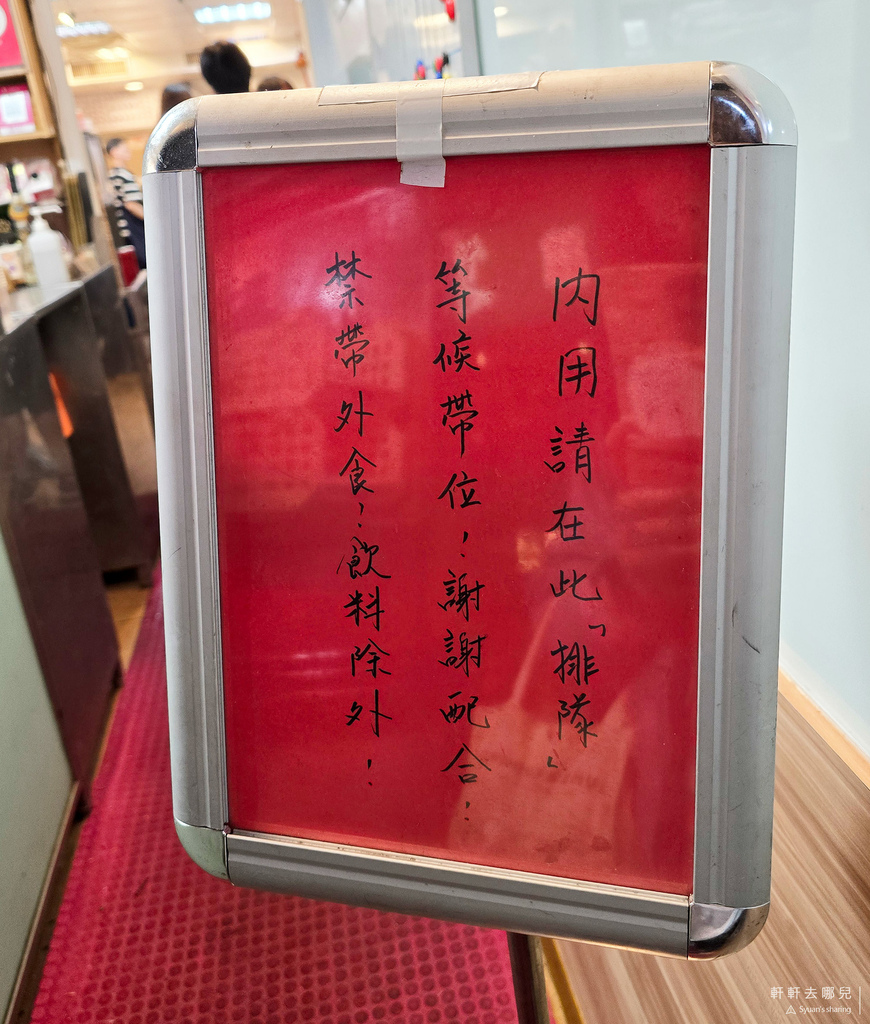 內用請在此「排隊」
等候帶位！謝謝配合！
禁帶外食！飲料除外！
軒軒去哪兒
Syuan's sharing